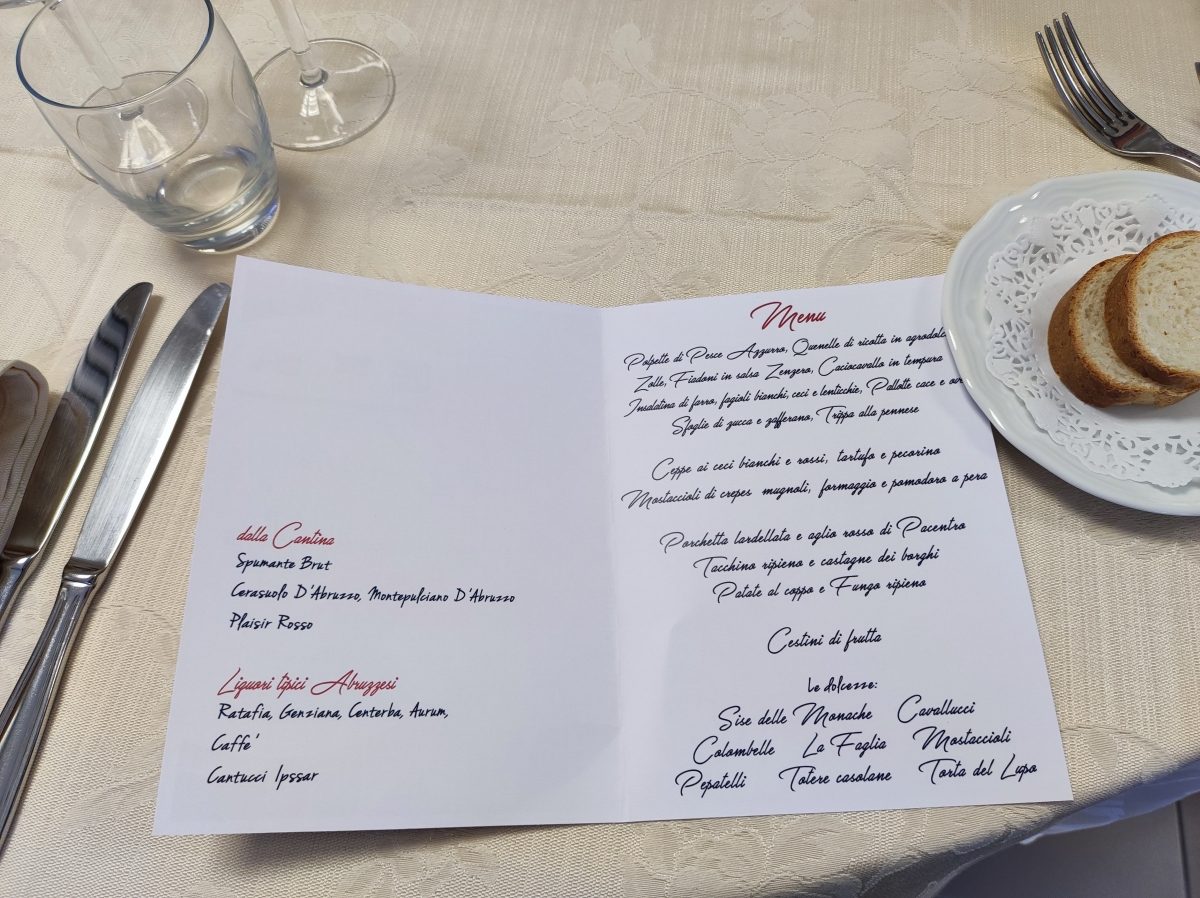 dalla Cantina
Spumante Brut
Cerasuolo D'Abruzzo, Montepulciano D'Abruzzo
Plaisir Rosso
Liquori tipici Abruzzesi
Ratafia, Genziana, Centerba, Aurum,
Caffe'
Cantucci Ipssar
Menu
Polpette di Pesce Azzurro, Quenelle di ricotta in
Zolle, Fiadoni in salsa Zenzero, Caciocavallo in tempura
Insalatina di farro, fagioli bianchi, ceci e lenticchie, Pallotte cace e
Sfoglie di zucca e zafferano, Trippa alla pennese
Ceppe ai ceci bianchi e rossi, tartufo e pecorino
Mostaccioli di crepes mugnoli, formaggio e pomodoro a pera
Porchetta lardellata e aglio rosso di Pacentro
Tacchino ripieno e castagne dei borghi
Patate al coppo e Fungo ripieno
Cestini di frutta
Le dolcezze:
Sise delle Monache Cavallucci
Colombelle La Faglia Mostaccioli
Pepatelli Totere casolane Torta del Lupo